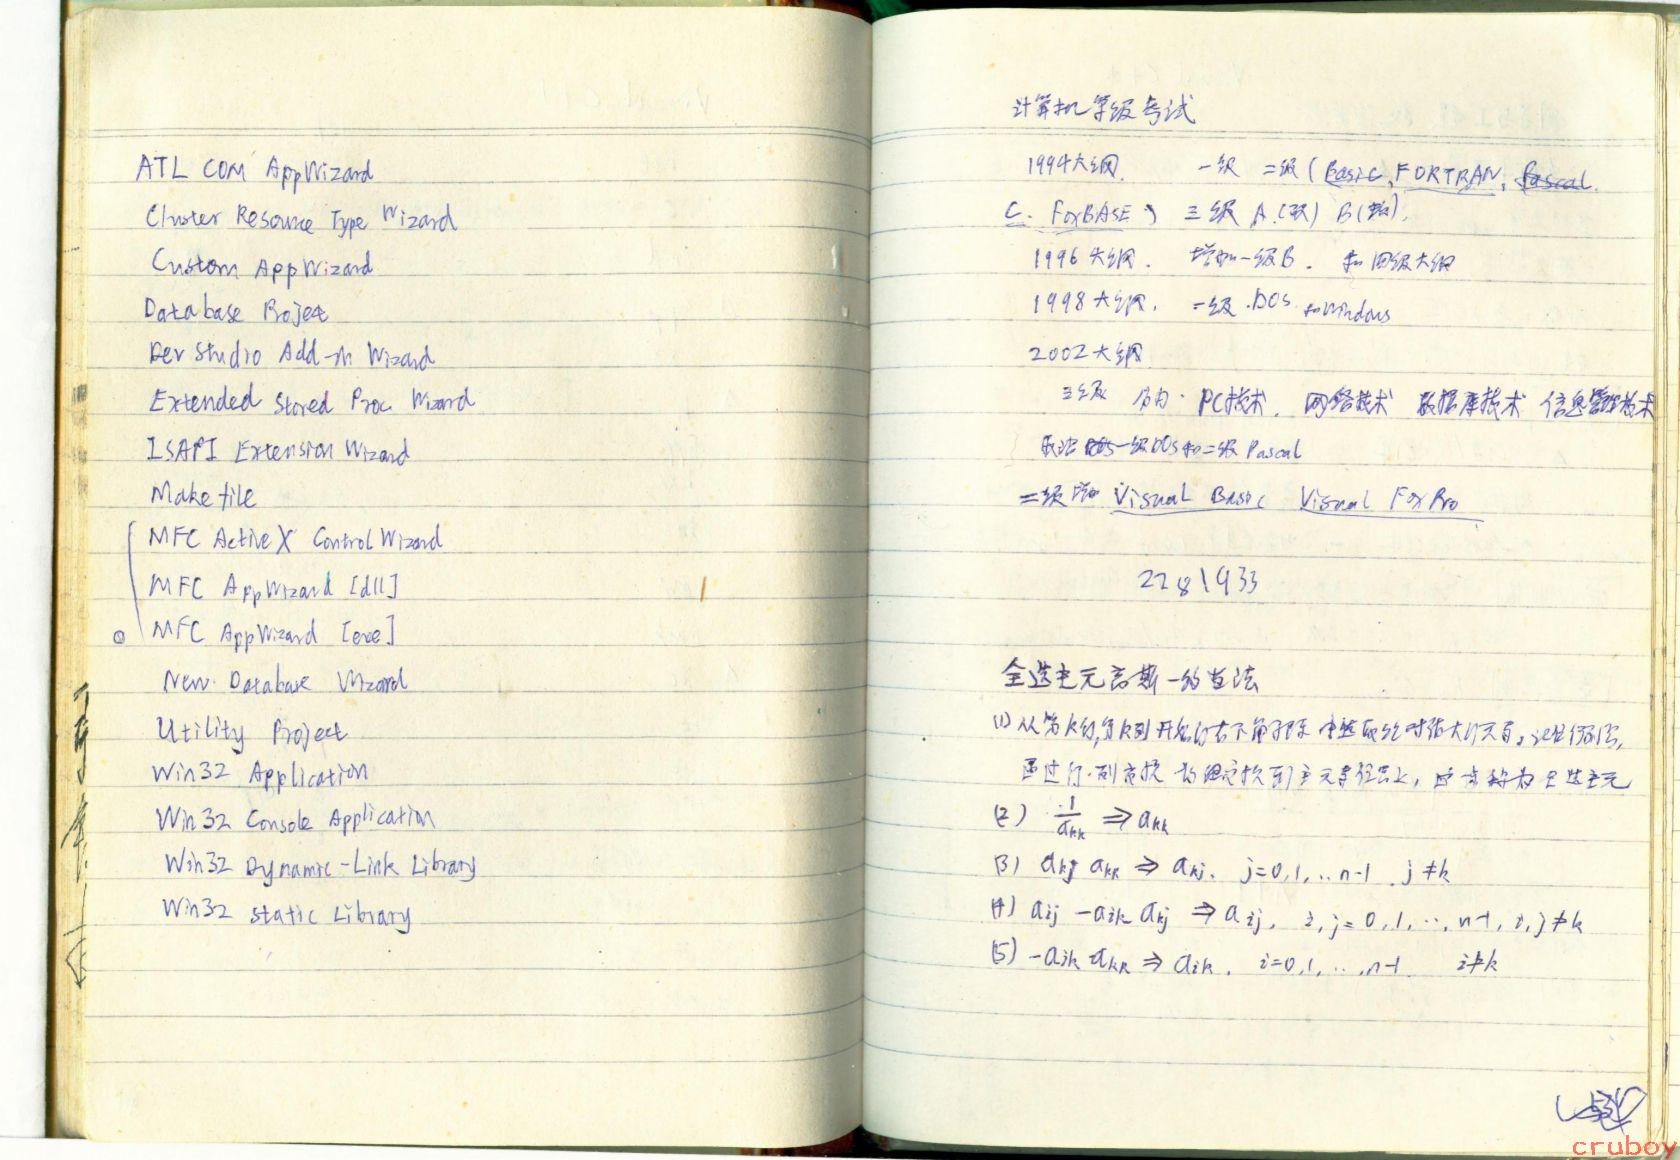 ATL COM AppWizard
Cluster Resource Type Wizard
Custom AppWizard
Database Project
Dev Studio Add-in Wizard
Extended Stored Proc Wizard
ISAPI Extension Wizard
Makefile
MFC ActiveX Control Wizard
MFC AppWizard [dll]
MFC AppWizard [exe]
New Database Wizard
Utility Project
Win32 Application
Win32 Console Application
Win32 Dynamic-Link Library
Win32 Static Library
计算机等级考试
1994大纲. 一级 二级 (Basic, FORTRAN, Pascal.
C. FoxBASE) 三级 A.(软) B(硬).
1996大纲. 增加一级B. 和四级大纲
1998大纲. 一级.DOS 和Windows
2002大纲
三级 分为. PC技术. 网络技术 数据库技术 信息管理技术
取消 一级DOS和二级Pascal
二级增加 Visual Basic Visual FoxPro
2281933
全选主元高斯一约当法
(1) 从第k行,第k列开始的右下角子阵中选取绝对值最大的元素,
通过行.列交换 将它交换到主元素位置上, 称为全选主元
(2) 1/akk ⇒ akk
(3) akj akk ⇒ akj. j=0,1,..n-1. j≠k
(4) aij -aik akj ⇒ aij. i,j=0,1,..,n-1, i,j≠k
(5) -aik akk ⇒ aik. i=0,1,..,n-1 i≠k
cruboy